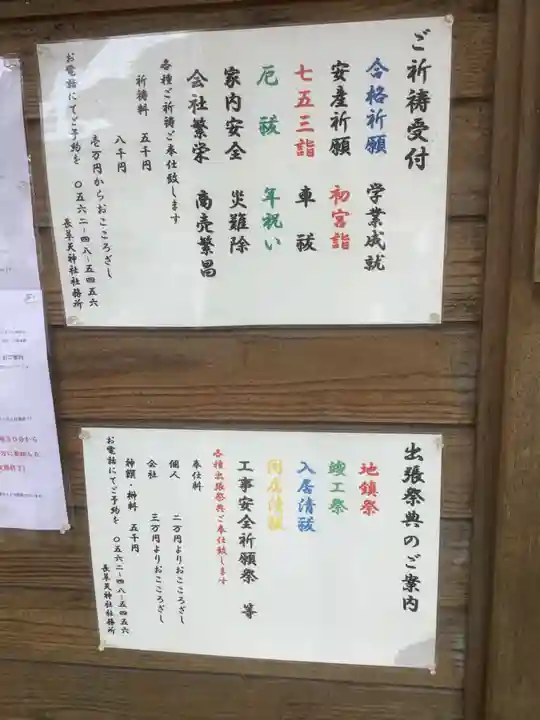 ご祈祷受付
合格祈願 学業成就
安産祈願 初宮詣
七五三詣 車祓
厄祓 年祝い
家内安全 災難除
会社繁栄 商売繁昌
各種ご祈祷ご奉仕致します
祈祷料 五千円
八千円
壱万円からおこころざし
お電話にてご予約を 〇五六二ー四八ー五四五六
長草天神社社務所
出張祭典のご案内
地鎮祭
竣工祭
入居清祓
開店清祓
工事安全祈願祭 等
各種出張祭典ご奉仕致します
奉仕料
個人 二万円よりおこころざし
会社 三万円よりおこころざし
神饌・榊料 五千円
お電話にてご予約を 〇五六二ー四八ー五四五六
長草天神社社務所